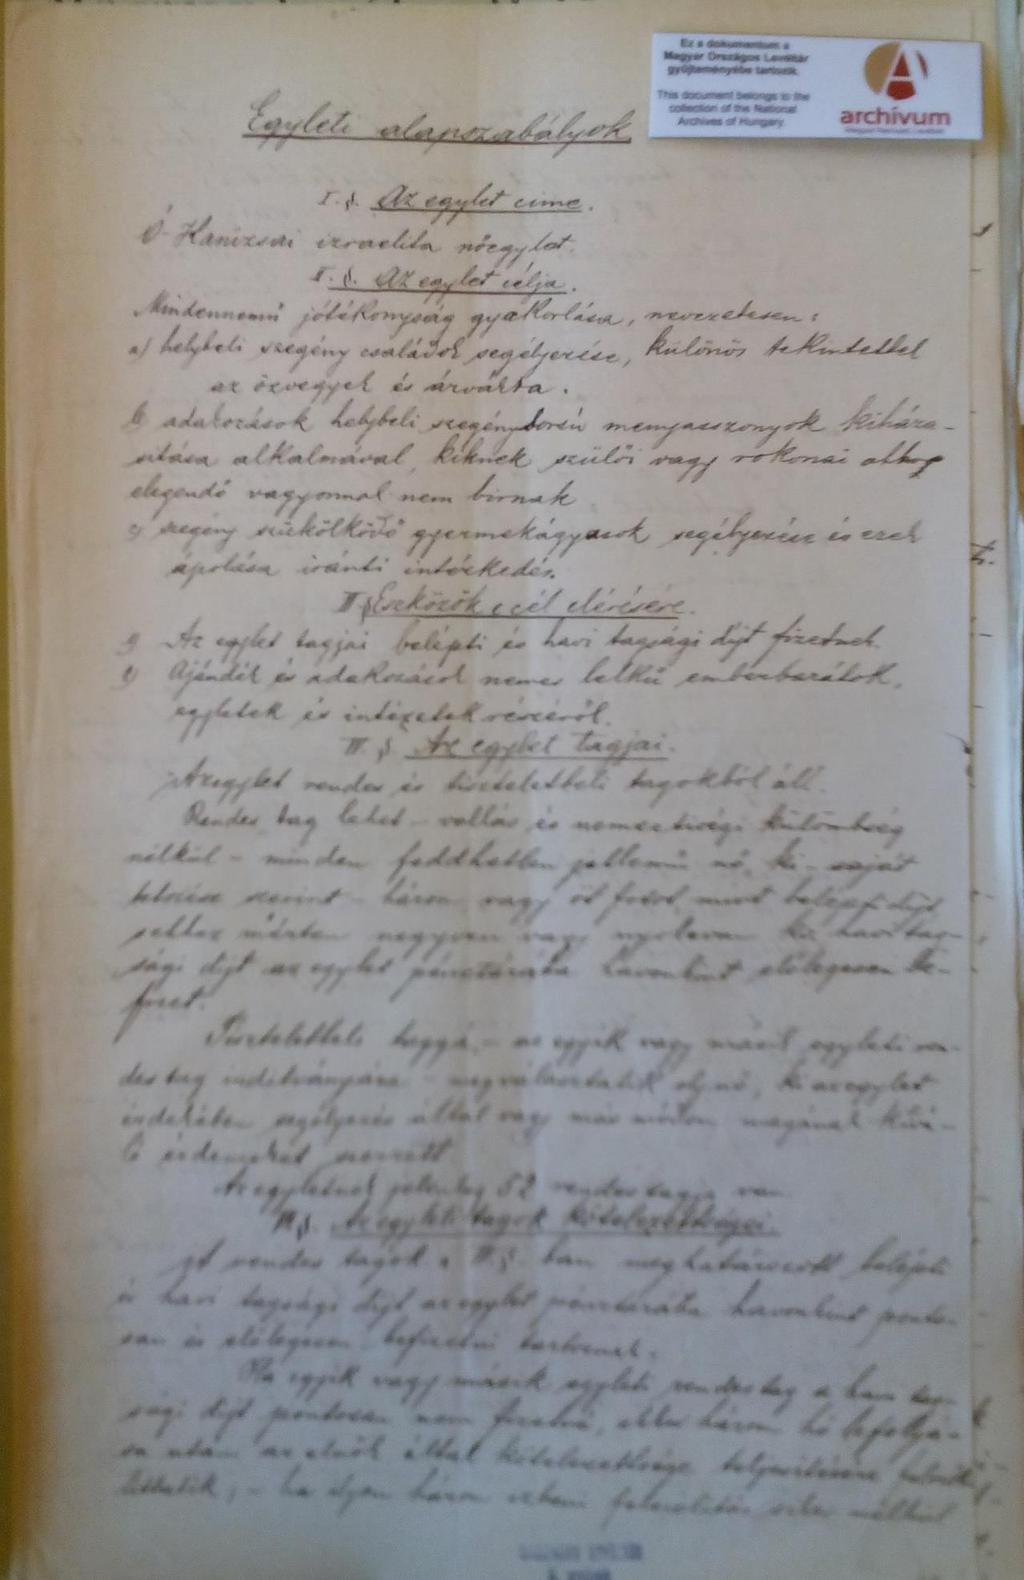 Ez a dokumentum a
Magyar Országos Levéltár
gyűjteményébe tartozik.
This document belongs to the
collection of the National
Archives of Hungary.
archívum
Magyar Nemzeti Levéltár
Egyleti alapszabályok
I. §. Az egylet címe.
Ó-Kanizsai izraelita nőegylet.
II. §. Az egylet célja.
Mindennemű jótékonyság gyakorlása, nevezetesen:
a) helybeli szegény családok segélyezése, különös tekintettel
az özvegyek és árvákra.
b) adakozások helybeli szegénysorsú menyasszonyok kiháza-
sitása alkalmával, kiknek szülői vagy rokonai ahhoz
elegendő vagyonnal nem birnak
c) szegény szűkölködő gyermekágyasok segélyezése és ezek
ápolása iránti intézkedés.
II § Eszközök e cél elérésére.
a) Az egylet tagjai belépti és havi tagsági díjt fizetnek.
b) Ajándék és adakozások nemes lelkű emberbarátok,
egyletek és intézetek részéről.
III. §. Az egylet tagjai.
Az egylet rendes és tiszteletbeli tagokból áll.
Rendes tag lehet – vallás és nemzetiségi külömbség
nélkül – minden feddhetlen jellemű nő, ki – saját
tetszése szerint – három vagy öt frtot, mint belépti díjt
s ehhez mérten negyven vagy nyolcvan kr. havi tag-
sági díjt az egylet pénztárába havonkint előlegesen be-
fizet.
Tiszteletbeli taggá, – az egyik vagy másik egyleti ren-
des tag indítványára – megválasztatik oly nő, ki az egylet
érdekében segélyezés által vagy más módon magának kivá-
ló érdemeket szerzett
Az egyletnek jelenleg 52 rendes tagja van
IV §. Az egyleti tagok kötelezettségei.
A rendes tagok a III §.-ban meghatározott belépti
és havi tagsági díjt az egylet pénztárába havonkint ponto-
san és előlegesen befizetni tartoznak.
Ha egyik vagy másik egyleti rendes tag a havi tag-
sági díjt pontosan nem fizetné, akkor három hó lefolyá-
sa után az elnök által kötelezettsége teljesítésére felszólít-
tatik; – ha ilyen három izbeni felszólítás siker nélkül